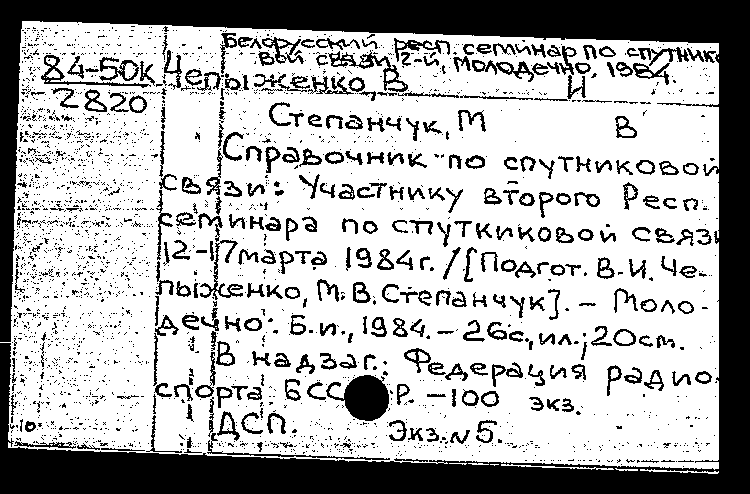 Белорусский респ. семинар по спутнико
вой связи, 2-й, Молодечно, 1984.
84-50К Чепыженко, В И
2820
Степанчук, М В
Справочник по спутниковой
связи: Участнику второго Респ.
семинара по спуткиковой связи
12-17 марта 1984г. / [Подгот. В.И. Че-
пыженко, М.В. Степанчук]. - Моло-
дечно: Б.и., 1984. - 26с., ил.; 20см.
В надзаг.: Федерация радио-
спорта БССР. - 100 экз.
ДСП. Экз. N 5.
10